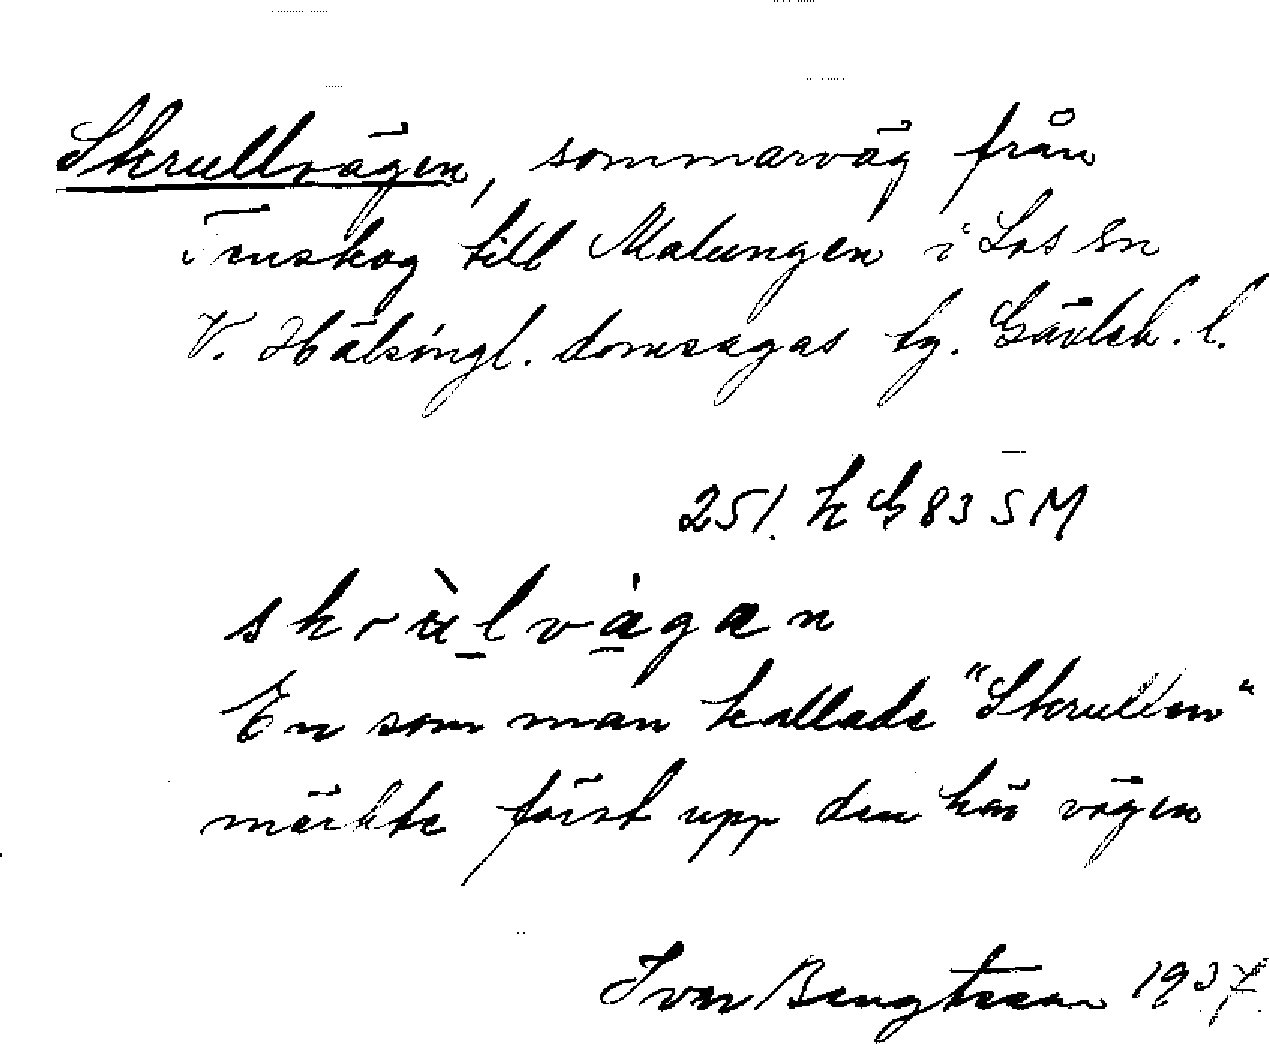 Skrullvägen, sommarväg från
Tenskog till Malungen i Los sn
V. Hälsingl. domsagas tg. Gävleb. l.
251. k G 83 SM
skrùlvägan
En som man kallade "Skrullen"
märkte först upp den här vägen
Ivar Bengtsson 1937.